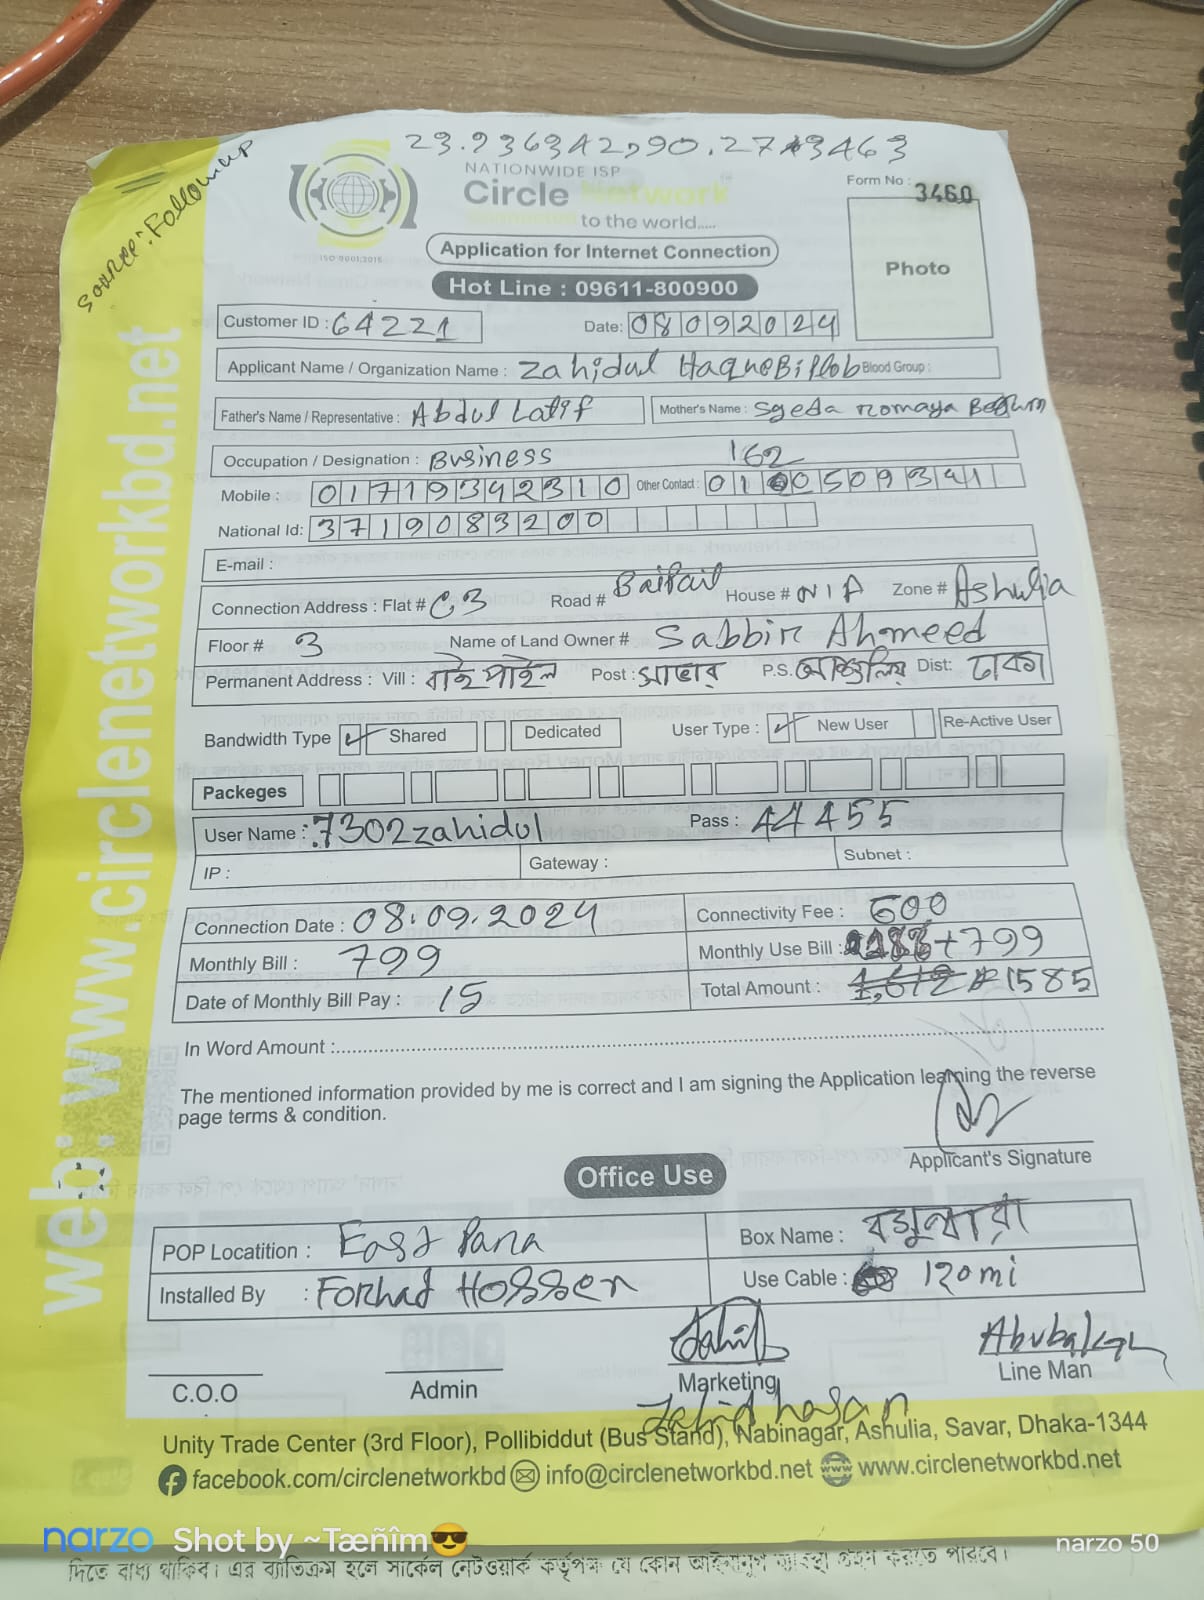 23.936342,90.273463
Source: Follow up
NATIONWIDE ISP
Circle Network
to the world.....
ISO 9001:2015
Form No : 3460
Photo
Application for Internet Connection
Hot Line : 09611-800900
Customer ID : 64221 Date: 08092024
Applicant Name / Organization Name : Zahidul Haque Biplob Blood Group :
Father's Name / Representative : Abdul Latif Mother's Name : Syeda Romaya Begum
Occupation / Designation : Business 162
Mobile : 01719342310 Other Contact : 01 0509341
National Id: 3719083200
E-mail :
Connection Address : Flat # C3 Road # Baipail House # N/A Zone # Ashulia
Floor # 3 Name of Land Owner # Sabbir Ahmeed
Permanent Address : Vill : বাইপাইল Post : সাভার P.S. আশুলিয়া Dist: ঢাকা
Bandwidth Type ✓ Shared Dedicated User Type : ✓ New User Re-Active User
Packeges
User Name : 7302zahidul Pass : 44455
IP : Gateway : Subnet :
Connection Date : 08.09.2024 Connectivity Fee : 600
Monthly Bill : 799 Monthly Use Bill : +799
Date of Monthly Bill Pay : 15 Total Amount : 1,612 1585
In Word Amount :
The mentioned information provided by me is correct and I am signing the Application learning the reverse
page terms & condition.
Applicant's Signature
Office Use
POP Locatition : East Para Box Name :
Installed By : Forhad Hossen Use Cable : 120mi
Zahid Abubakar
C.O.O Admin Marketing Line Man
Zahid hasan
Unity Trade Center (3rd Floor), Pollibiddut (Bus Stand), Nabinagar, Ashulia, Savar, Dhaka-1344
facebook.com/circlenetworkbd info@circlenetworkbd.net www.circlenetworkbd.net
web: www.circlenetworkbd.net
narzo Shot by ~Tæñîm😎 narzo 50
দিতে বাধ্য থাকিব। এর ব্যতিক্রম হলে সার্কেল নেটওয়ার্ক কর্তৃপক্ষ যে কোন আইনানুগ ব্যবস্থা গ্রহণ করতে পারবে।